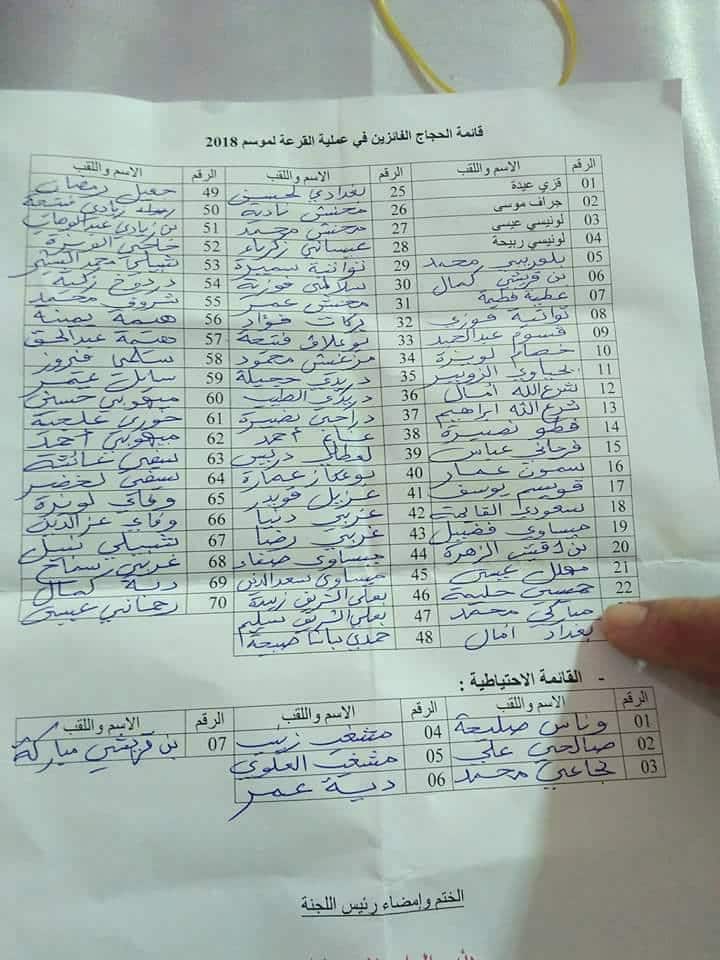 قائمة الحجاج الفائزين في عملية القرعة لموسم 2018
الرقم الاسم واللقب الرقم الاسم واللقب الرقم الاسم واللقب
01 قزي عيدة 25 بغدادي لحسن 49 جعيل رمضان
02 جراف موسى 26 محنش نادية 50 زيادي فتيحة
03 لونيسي عيسى 27 محنش محمد 51 بن زيادي عبد الوهاب
04 لونيسي ربيحة 28 عيساني زكرياء 52 خلفي الويزة
05 بلعربي محمد 29 نواتية سميرة 53 شبلي محمد البشير
06 بن قريشي كمال 30 سلامي فوزية 54 دردوخ زكية
07 عطية فطيمة 31 محنش عمر 55 شروف محمد
08 نواتية فوزي 32 بركات فؤاد 56 هتمة يمينة
09 قسوم عبد الحميد 33 بوعلاق فتيحة 57 هتمة عبد الحق
10 خصام لويزة 34 مزغنش محمود 58 سلمي فيروز
11 يحياوي الزوبير 35 دريدي جميلة 59 سايل عمر
12 شرع الله أمال 36 دريدي الطيب 60 ميهوبي حسني
13 شرع الله ابراهيم 37 دراجي نصيرة 61 خوري علجية
14 قطو نصيرة 38 عناب أحمد 62 ميهوبي أحمد
15 فرحاتي عباس 39 لعطالي دريس 63 سفي غانية
16 سموت عمار 40 بوعكاز عمارة 64 سفي لخضر
17 قويسم يوسف 41 عزيل قويدر 65 وفاي لويزة
18 سعودي القايمة 42 غربي دنيا 66 وفاي عز الدين
19 عيساوي فضيل 43 غربي رضا 67 شبيلي نسيل
20 بن لقبي الزهرة 44 عيساوي صفاء 68 غربي سماح
21 مهلل عيسى 45 عيساوي سعد الدين 69 دية كمال
22 خمسي حليمة 46 بعلي الشريف زبيدة 70 رحماني عيسى
مباركي محمد 47 بعلي الشريف سليم
بغداد أمال 48 حمدي باشا صبيحة
- القائمة الاحتياطية :
الرقم الاسم واللقب الرقم الاسم واللقب الرقم الاسم واللقب
01 وناس صليحة 04 مشغب زينب 07 بن قريشي مباركة
02 صالحي علي 05 مشغب العلوي
03 نجاعي محمد 06 دية عمر
الختم وإمضاء رئيس اللجنة